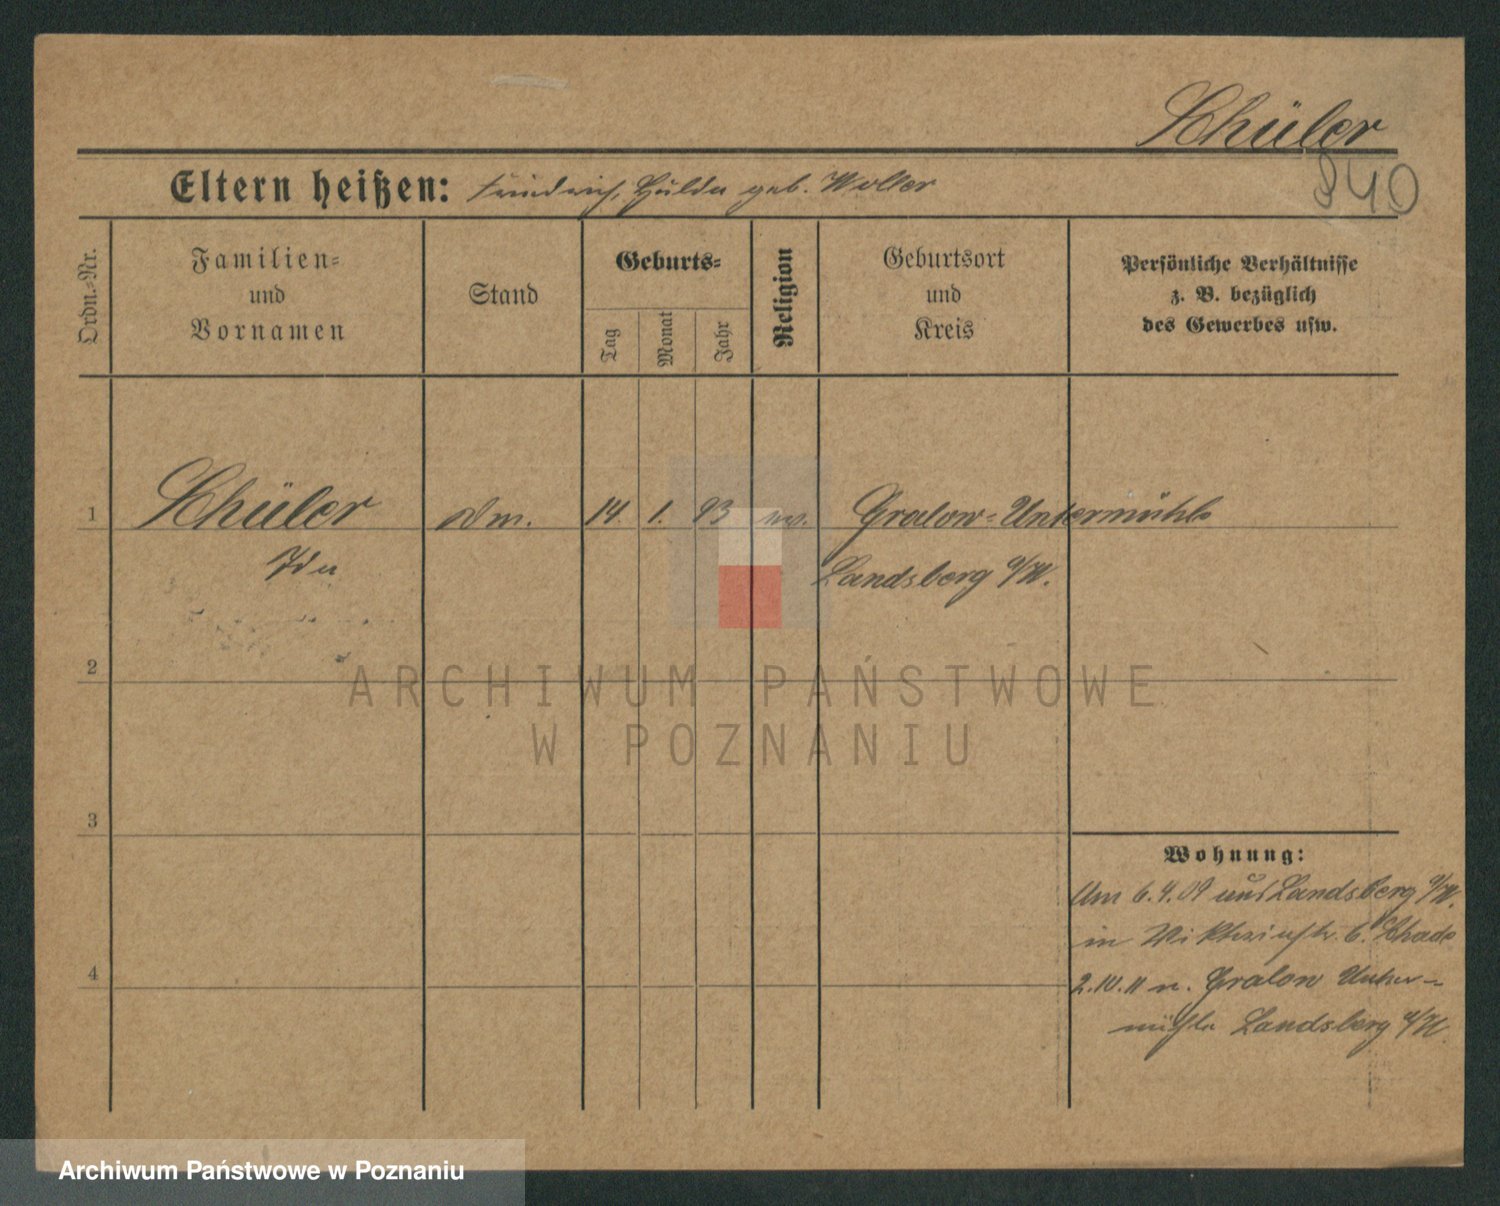 Schüler
840
Eltern heißen: Friedrich, Hulda geb. Woller
Ordn.-Nr.
Familien-
und
Vornamen
Stand
Geburts-
Tag
Monat
Jahr
Religion
Geburtsort
und
Kreis
Persönliche Verhältnisse
z. B. bezüglich
des Gewerbes usw.
1 Schüler 14. 1. 93 ev. Gralow-Untermühle
Ida Landsberg a/W.
2
ARCHIWUM PAŃSTWOWE
W POZNANIU
3
Wohnung:
Am 6.4.09 aus Landsberg a/W.
in Viktoriastr. 6.
4
2.10.11 n. Gralow Unter-
mühle Landsberg a/W.
Archiwum Państwowe w Poznaniu